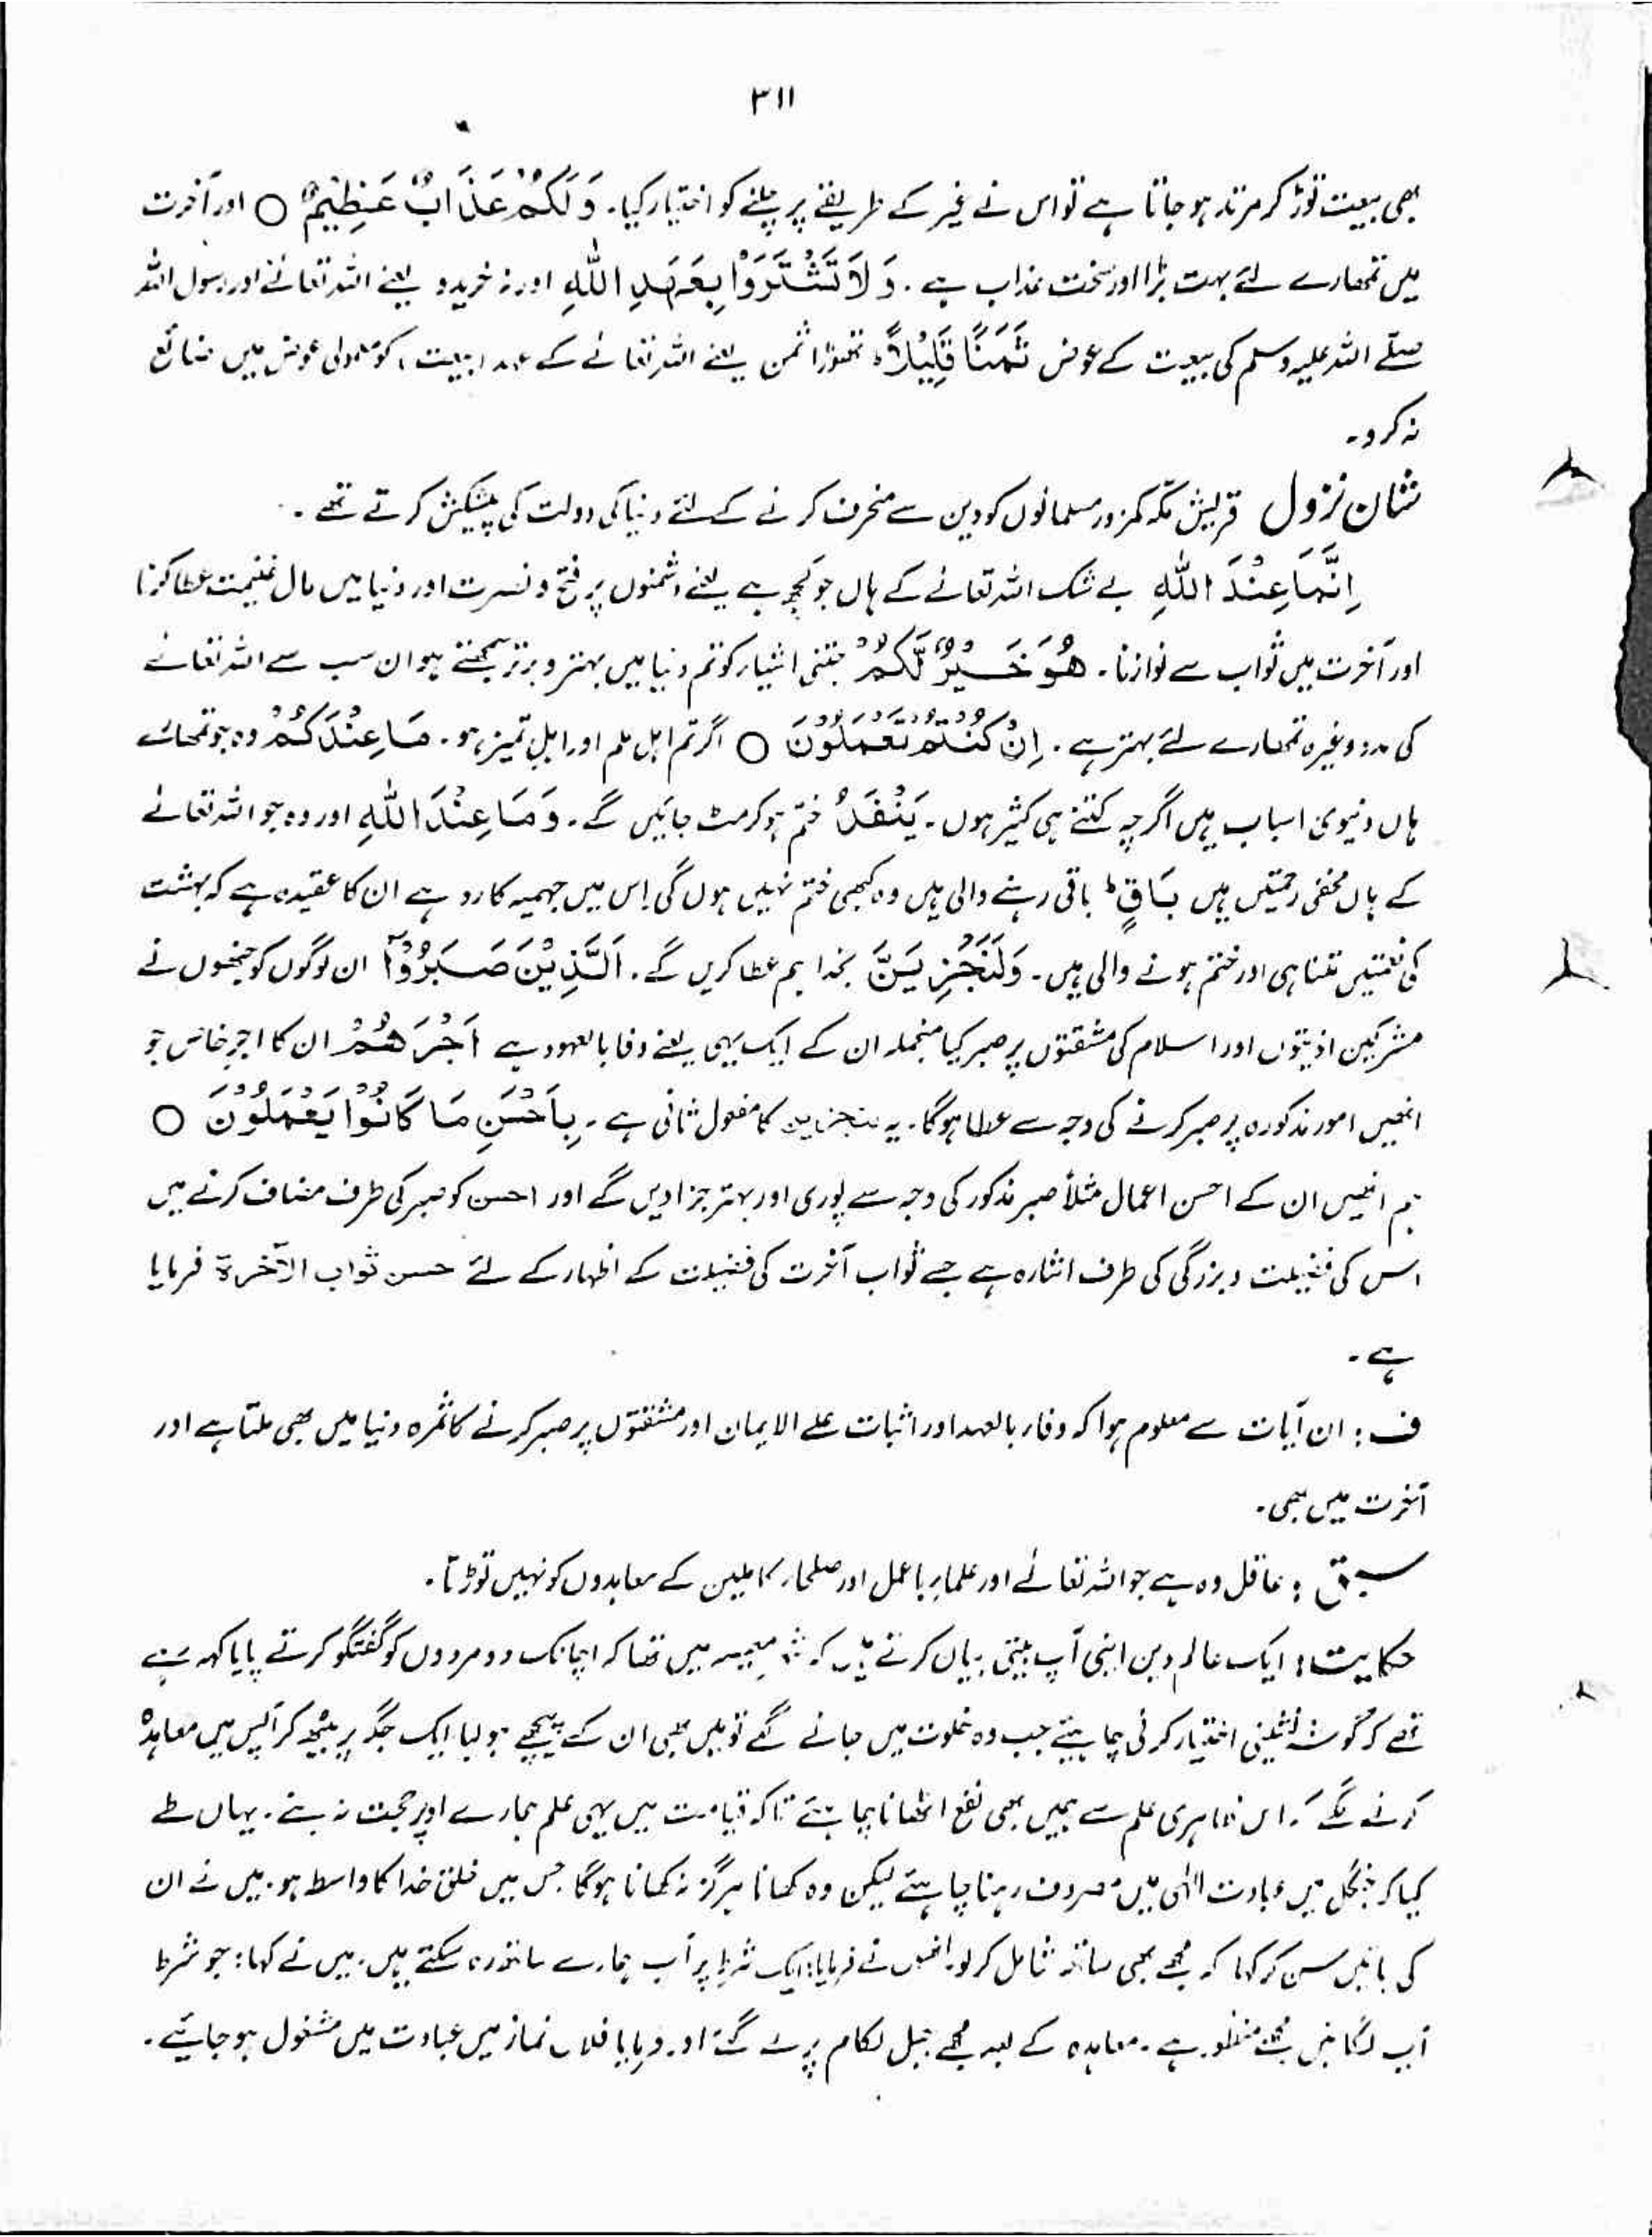 ۳۱۱
بھی بیعت توڑ کر مرتد ہو جاتا ہے تو اس نے غیر کے طریقے پر چلنے کو اختیار کیا۔ وَلَكُمْ عَذَابٌ عَظِيْمٌ ○ اور آخرت
میں تمھارے لئے بہت بڑا اور سخت عذاب ہے۔ وَلَا تَشْتَرُوْا بِعَهْدِ اللهِ اور نہ خریدو یعنے اللہ تعالےٰ اور رسول اللہ
صلے اللہ علیہ وسلم کی بیعت کے عوض ثَمَنًا قَلِيْلًا ؕ تھوڑا ثمن یعنے اللہ تعالےٰ کے عہد (بیعت) کو معمولی عوض میں ضائع
نہ کرو۔
شان نزول قریش مکہ کمزور مسلمانوں کو دین سے منحرف کرنے کے لئے دنیا کی دولت کی پیشکش کرتے تھے۔
اِنَّمَا عِنْدَ اللهِ بے شک اللہ تعالےٰ کے ہاں جو کچھ ہے یعنے دشمنوں پر فتح و نصرت اور دنیا میں مال غنیمت عطا کرنا
اور آخرت میں ثواب سے نوازنا۔ هُوَ خَيْرٌ لَّكُمْ جتنی اشیاء کو تم دنیا میں بہتر و برتر سمجھتے ہو ان سب سے اللہ تعالےٰ
کی مدد وغیرہ تمھارے لئے بہتر ہے۔ اِنْ كُنْتُمْ تَعْمَلُوْنَ ○ اگر تم اہل علم اور اہل تمیز ہو۔ مَا عِنْدَكُمْ وہ جو تمھارے
ہاں دنیوی اسباب ہیں اگرچہ کتنے ہی کثیر ہوں۔ يَنْفَدُ ختم ہو کر مٹ جائیں گے۔ وَمَا عِنْدَ اللهِ اور وہ جو اللہ تعالےٰ
کے ہاں مخفی رحمتیں ہیں بَاقٍ ؕ باقی رہنے والی ہیں وہ کبھی ختم نہیں ہوں گی اس میں جہمیہ کا رد ہے ان کا عقیدہ ہے کہ بہشت
کی نعمتیں متناہی اور ختم ہونے والی ہیں۔ وَلَنَجْزِيَنَّ بخدا ہم عطا کریں گے۔ الَّذِيْنَ صَبَرُوْٓا ان لوگوں کو جنھوں نے
مشرکین اذیتوں اور اسلام کی مشقتوں پر صبر کیا منجملہ ان کے ایک یہی یعنے وفا بالعہود ہے اَجْرَهُمْ ان کا اجر خاص جو
انھیں امور مذکورہ پر صبر کرنے کی وجہ سے عطا ہوگا۔ یہ کا مفعول ثانی ہے۔ بِاَحْسَنِ مَا كَانُوْا يَعْمَلُوْنَ ○
ہم انھیں ان کے احسن اعمال مثلاً صبر مذکور کی وجہ سے پوری اور بہتر جزا دیں گے اور احسن کو صبر کی طرف مضاف کرنے میں
اس کی فضیلت و بزرگی کی طرف اشارہ ہے جسے ثواب آخرت کی فضیلت کے اظہار کے لئے حسن ثواب الآخرة فرمایا
ہے۔
ف : ان آیات سے معلوم ہوا کہ وفاء بالعہد اور اثبات علے الایمان اور مشقتوں پر صبر کرنے کا ثمرہ دنیا میں بھی ملتا ہے اور
آخرت میں بھی۔
سبق : عاقل وہ ہے جو اللہ تعالےٰ اور علماء باعمل اور صلحاء کاملین کے معاہدوں کو نہیں توڑتا۔
حکایت : ایک عالم دین اپنی آپ بیتی بیان کرتے ہیں کہ میں تھا کہ اچانک دو مردوں کو گفتگو کرتے پایا کہہ رہے
تھے کہ گوشہ نشینی اختیار کرنی چاہیئے جب وہ خلوت میں جانے لگے تو میں بھی ان کے پیچھے ہو لیا ایک جگہ پر بیٹھ کر آپس میں معاہدہ
کرنے لگے کہ اس ظاہری علم سے ہمیں بھی نفع اٹھانا چاہیئے تاکہ قیامت میں یہی علم ہمارے اوپر حجت نہ بنے۔ یہاں طے
کیا کہ جنگل میں عبادت الٰہی میں مصروف رہنا چاہیئے لیکن وہ کھانا ہرگز نہ کھانا ہوگا جس میں خلق خدا کا واسطہ ہو۔ میں نے ان
کی باتیں سن کر کہا کہ مجھے بھی ساتھ شامل کر لو۔ انھوں نے فرمایا: ایک شرط پر آپ ہمارے ساتھ رہ سکتے ہیں۔ میں نے کہا: جو شرط
آپ لگائیں مجھے منظور ہے۔ معاہدہ کے بعد مجھے جبل لکام پر لے گئے اور فرمایا فلاں نماز میں عبادت میں مشغول ہو جائیے۔